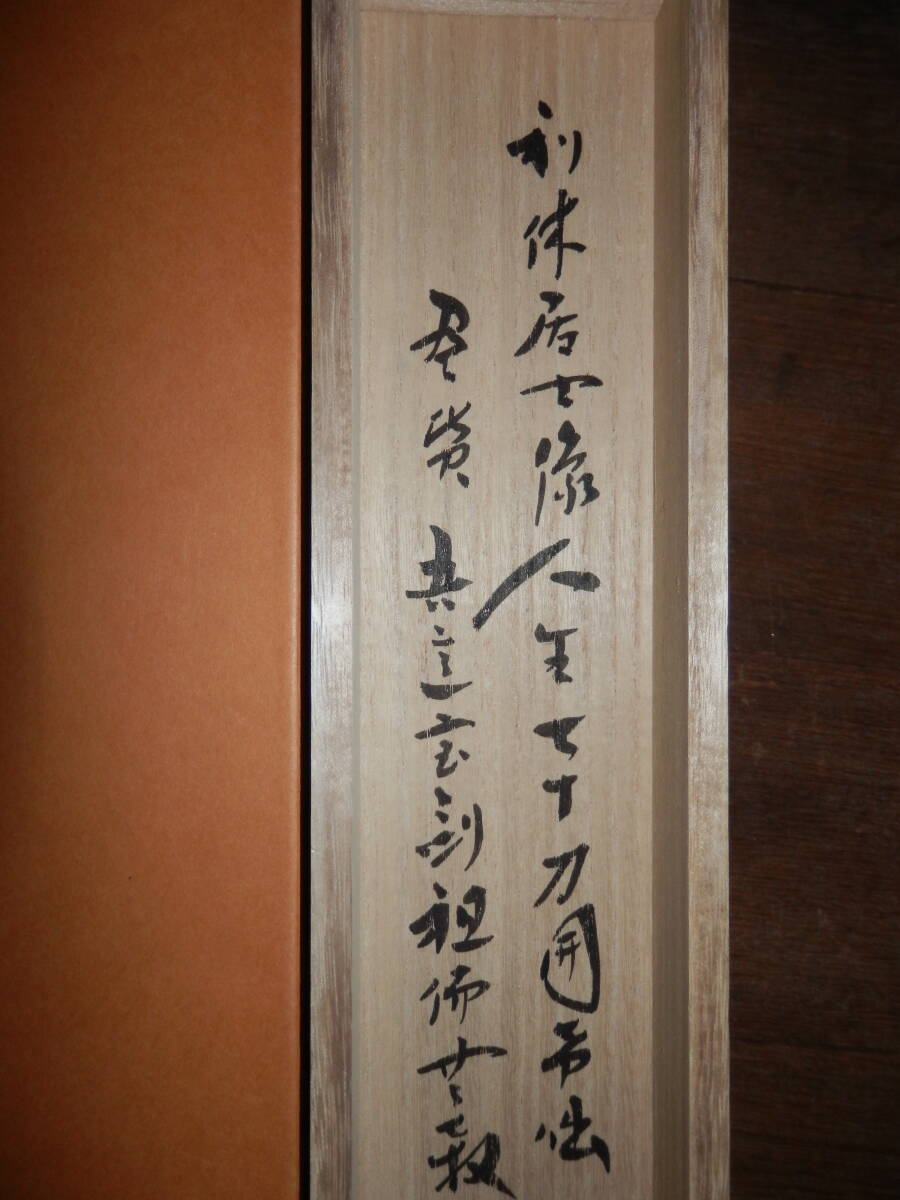 利休居士像 人生七十力囲希咄
賛 吾這宝剣祖佛共殺